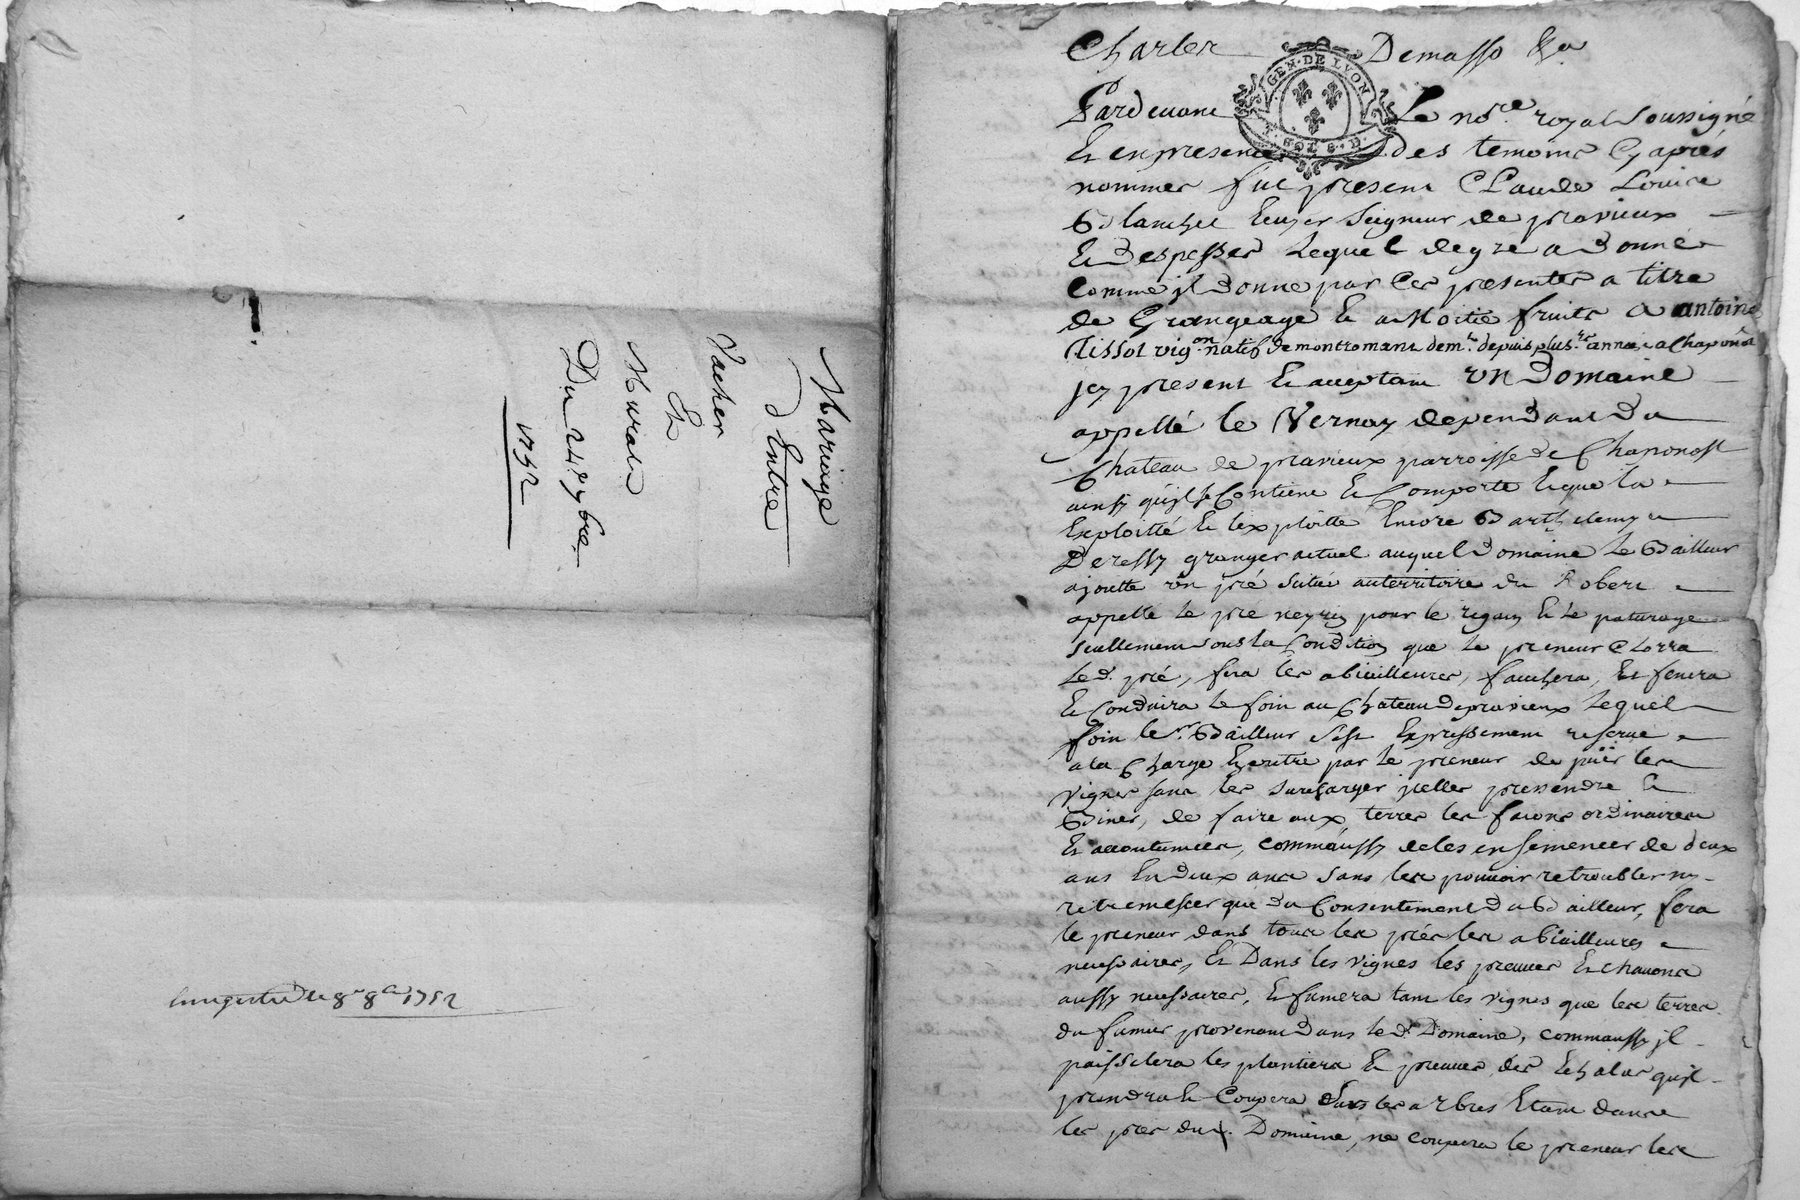 Mariage
Entre
Vacher
Et
Du 24e 7bre
1752
Enregistré le 8e 8bre 1752
Charles Demasso &a
GEN. DE LYON
Pardevant Le nore royal soussigné
Et en presence des temoins Cy aprés
nommes fut present Claude Louis
Blanchet Ecuyer Seigneur de pravieux
Et Despesses Lequel de gre a donné
Comme jl donne par Ces presentes a titre
de Grangeage Et a Moitié fruits a antoine
Tissot vigon natif de montromant demt depuis plusrs années a Chaponost
jcy present Et acceptant un Domaine
appellé le Vernay dependant du
Chateau de pravieux parroisse de Chaponost
ainsy qu'jl se Contient Et Comporte Et que la
Exploitté Et lexploitte Encore Barthelemy
Deressy granger actuel auquel Domaine Le Bailleur
ajoutte un pré situé au territoire du Robert
appellé Le pré neyrey pour le regain Et Le paturage
seullement sous la Condition que Le preneur Clorra
Led. pré, fera les abieilleures, fauchera, Et fenera
Et Conduira Le foin au Chateau de pravieux Lequel
foin le sr Bailleur sest Expressement reservé
a la Charge En outre par le preneur de puër les
vignes sans les surcharger jcelles provendre Et
Biner, de faire aux terres les facons ordinaires
Et accoutumées, comm'aussy de les ensemencer de deux
ans En deux ans sans les pouvoir retroubler ny
que du Consentement du Bailleur, fera
le preneur dans tous les prés les abieilleures
necessaires, Et Dans les vignes les preuves Et chavons
aussy necessaires, Et fumera tant les vignes que les terres
du fumier provenant Dans le d. Domaine, comm'aussy jl
paisselera les plantiers Et preuves des Echalas qu'jl
prendra Et Coupera sur les arbres Etant dans
les prés dud. Domaine, ne coupera le preneur les